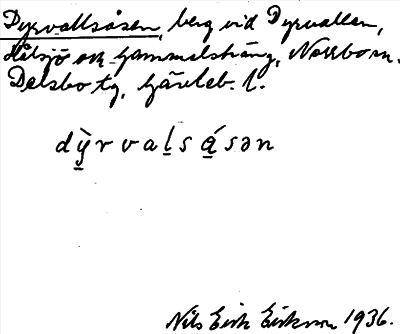 Dyrvallsåsen, berg vid Dyrvallen,
Hålsjö och Gammelsträng, Norrbo sn.
Delsbo tg, Gävleb. l.
dỳrvalsá̱sən
Nils Eirik Eriksson 1936.